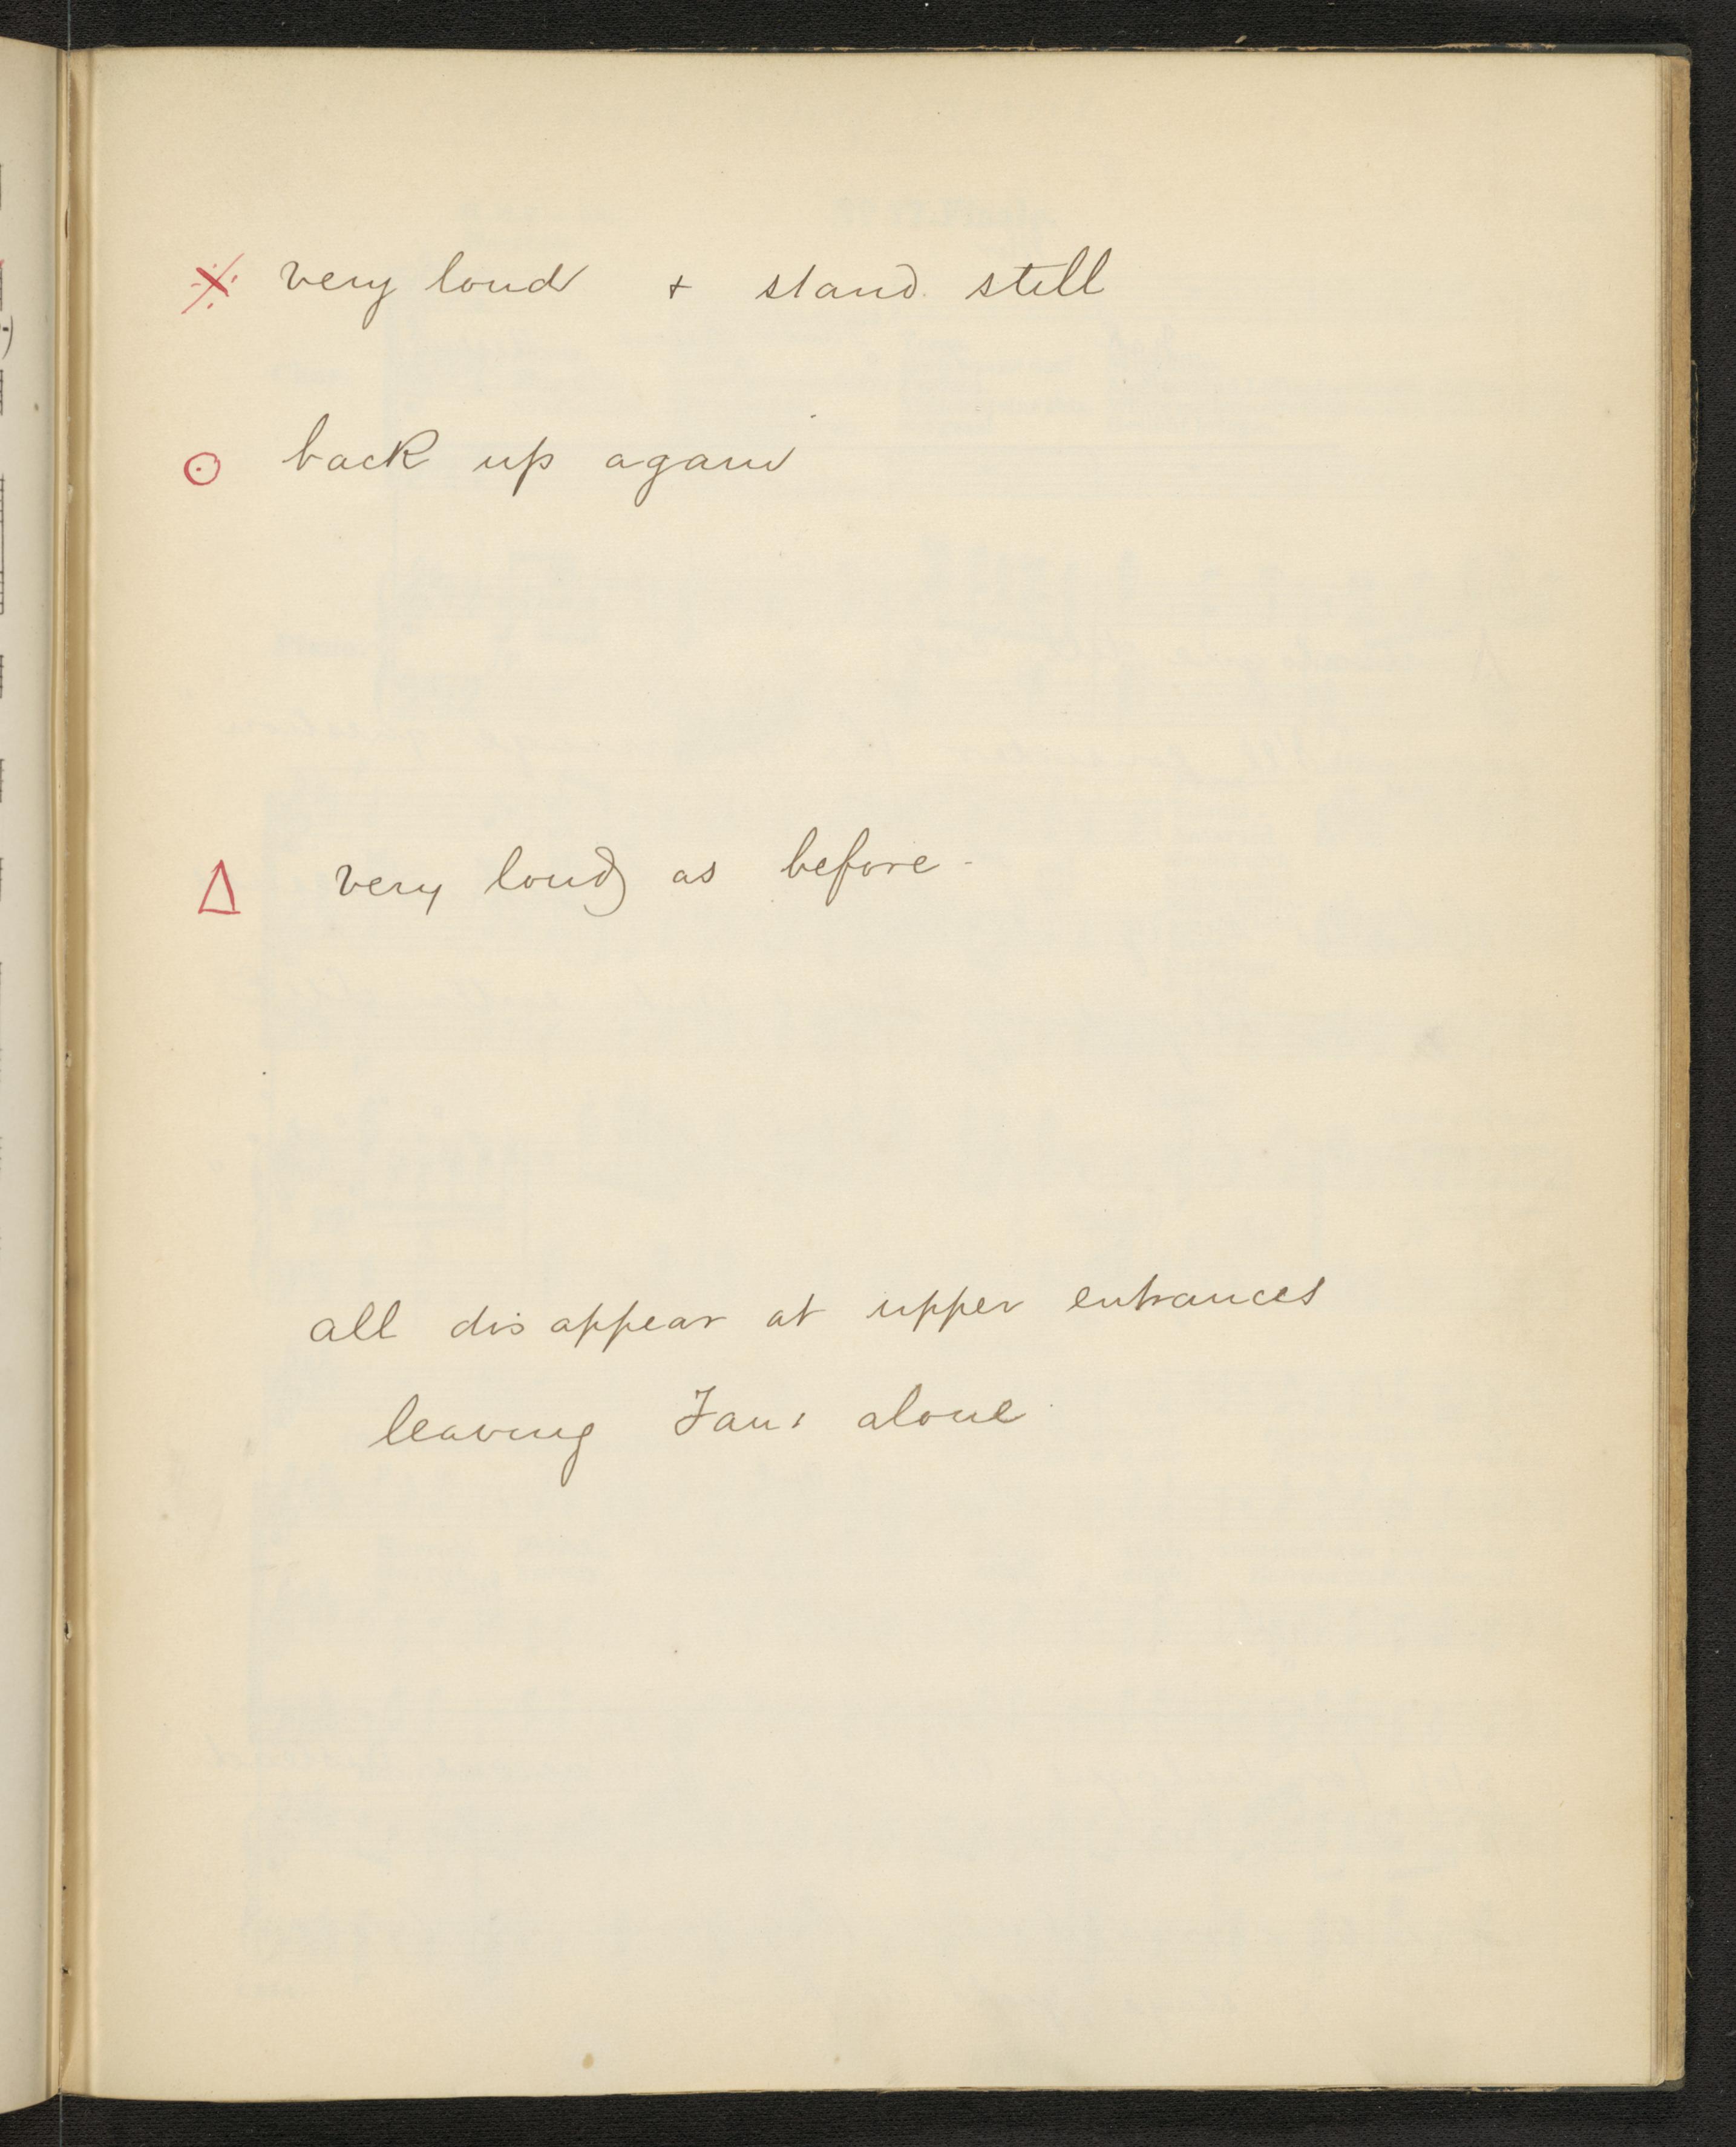 ※ very loud + stand still
⊙ back up again
△ very loud as before -
all disappear at upper entrances
leaving alone